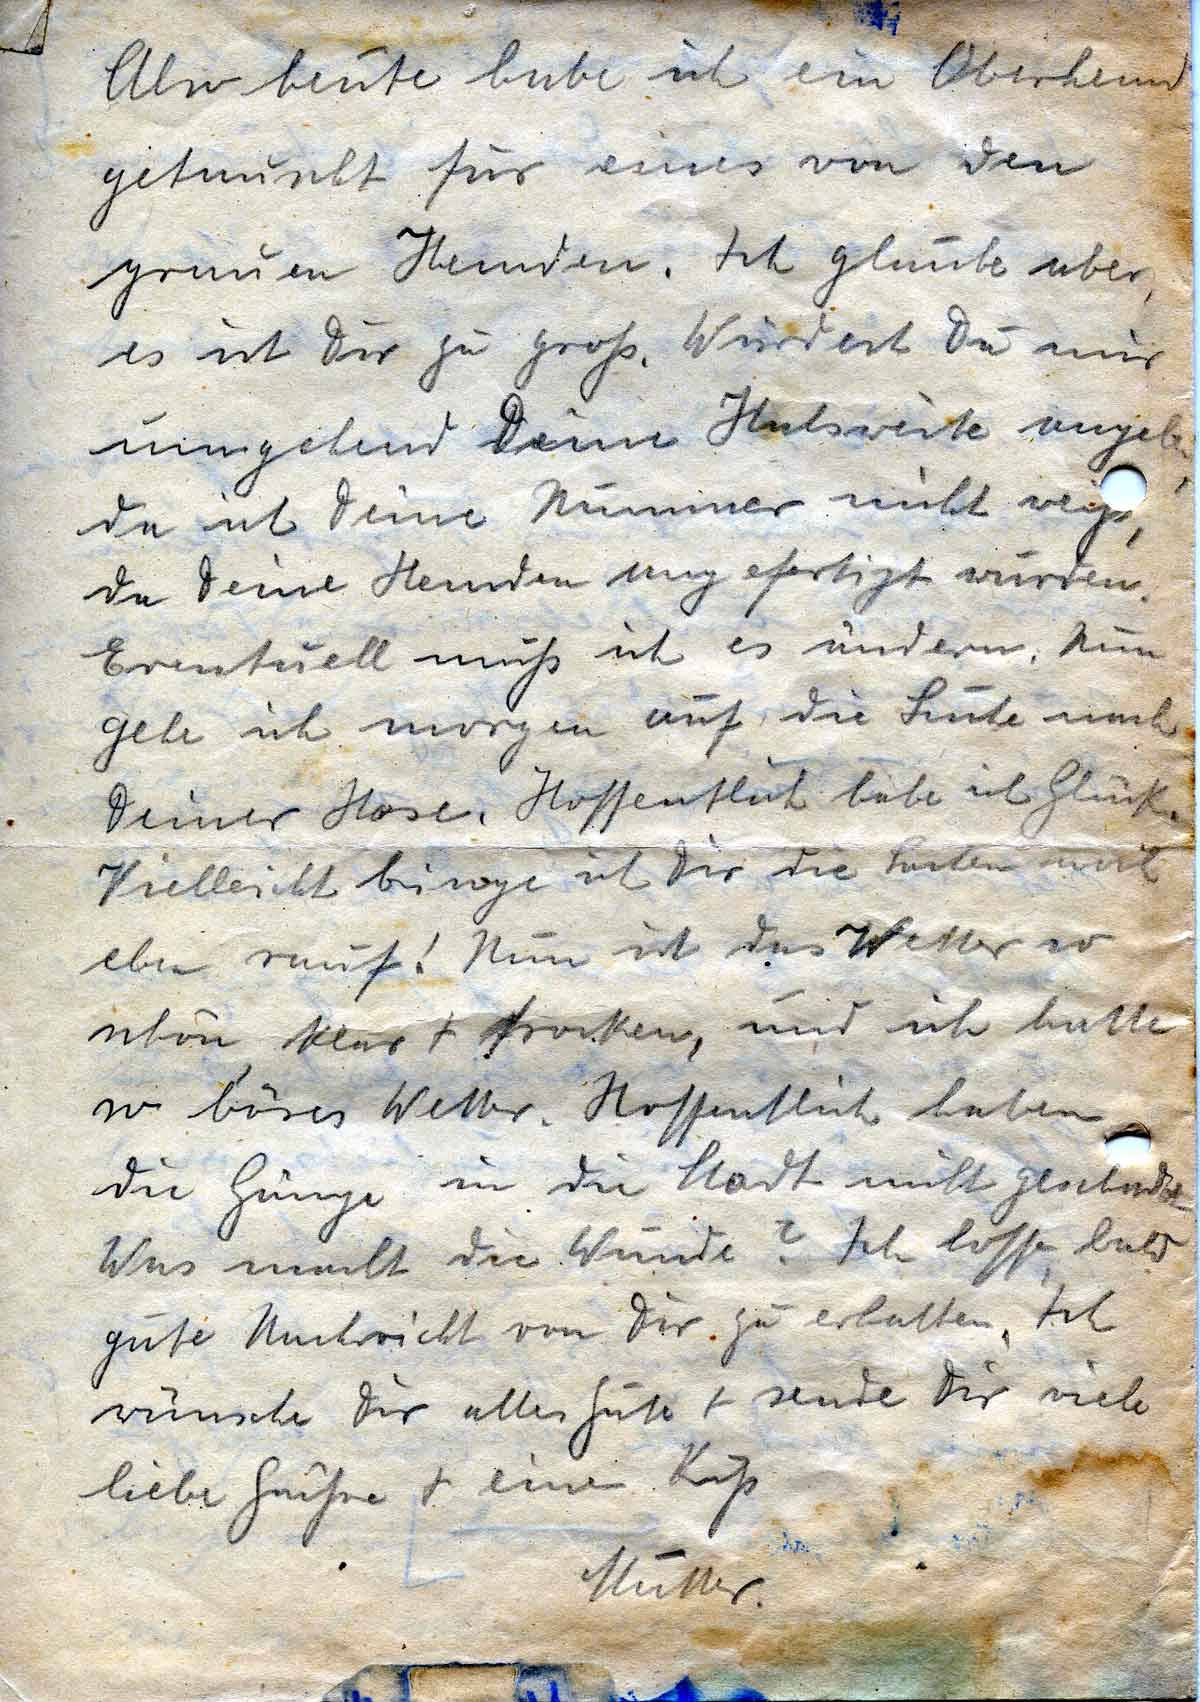 Also heute habe ich ein Oberhemd
getauscht für eines von den
grauen Hemden. Ich glaube aber,
es ist Dir zu groß. Würdest Du mir
umgehend Deine Halsweite angeben,
da ich Deine Nummer nicht weiß,
da Deine Hemden angefertigt wurden.
Eventuell muß ich es ändern. Nun
gehe ich morgen auf die Suche nach
Deiner Hose. Hoffentlich habe ich Glück.
Vielleicht bringe ich Dir die Sachen
eben rauf! Nun ist das Wetter so
schön, klar + trocken, und ich hatte
so böses Wetter. Hoffentlich haben
die Gänge in die Stadt nicht geschadet.
Was macht die Wunde? Ich hoffe, bald
gute Nachricht von Dir zu erhalten. Ich
wünsche Dir alles Gute + sende Dir viele
liebe Grüße + einen Kuß
Mutter.